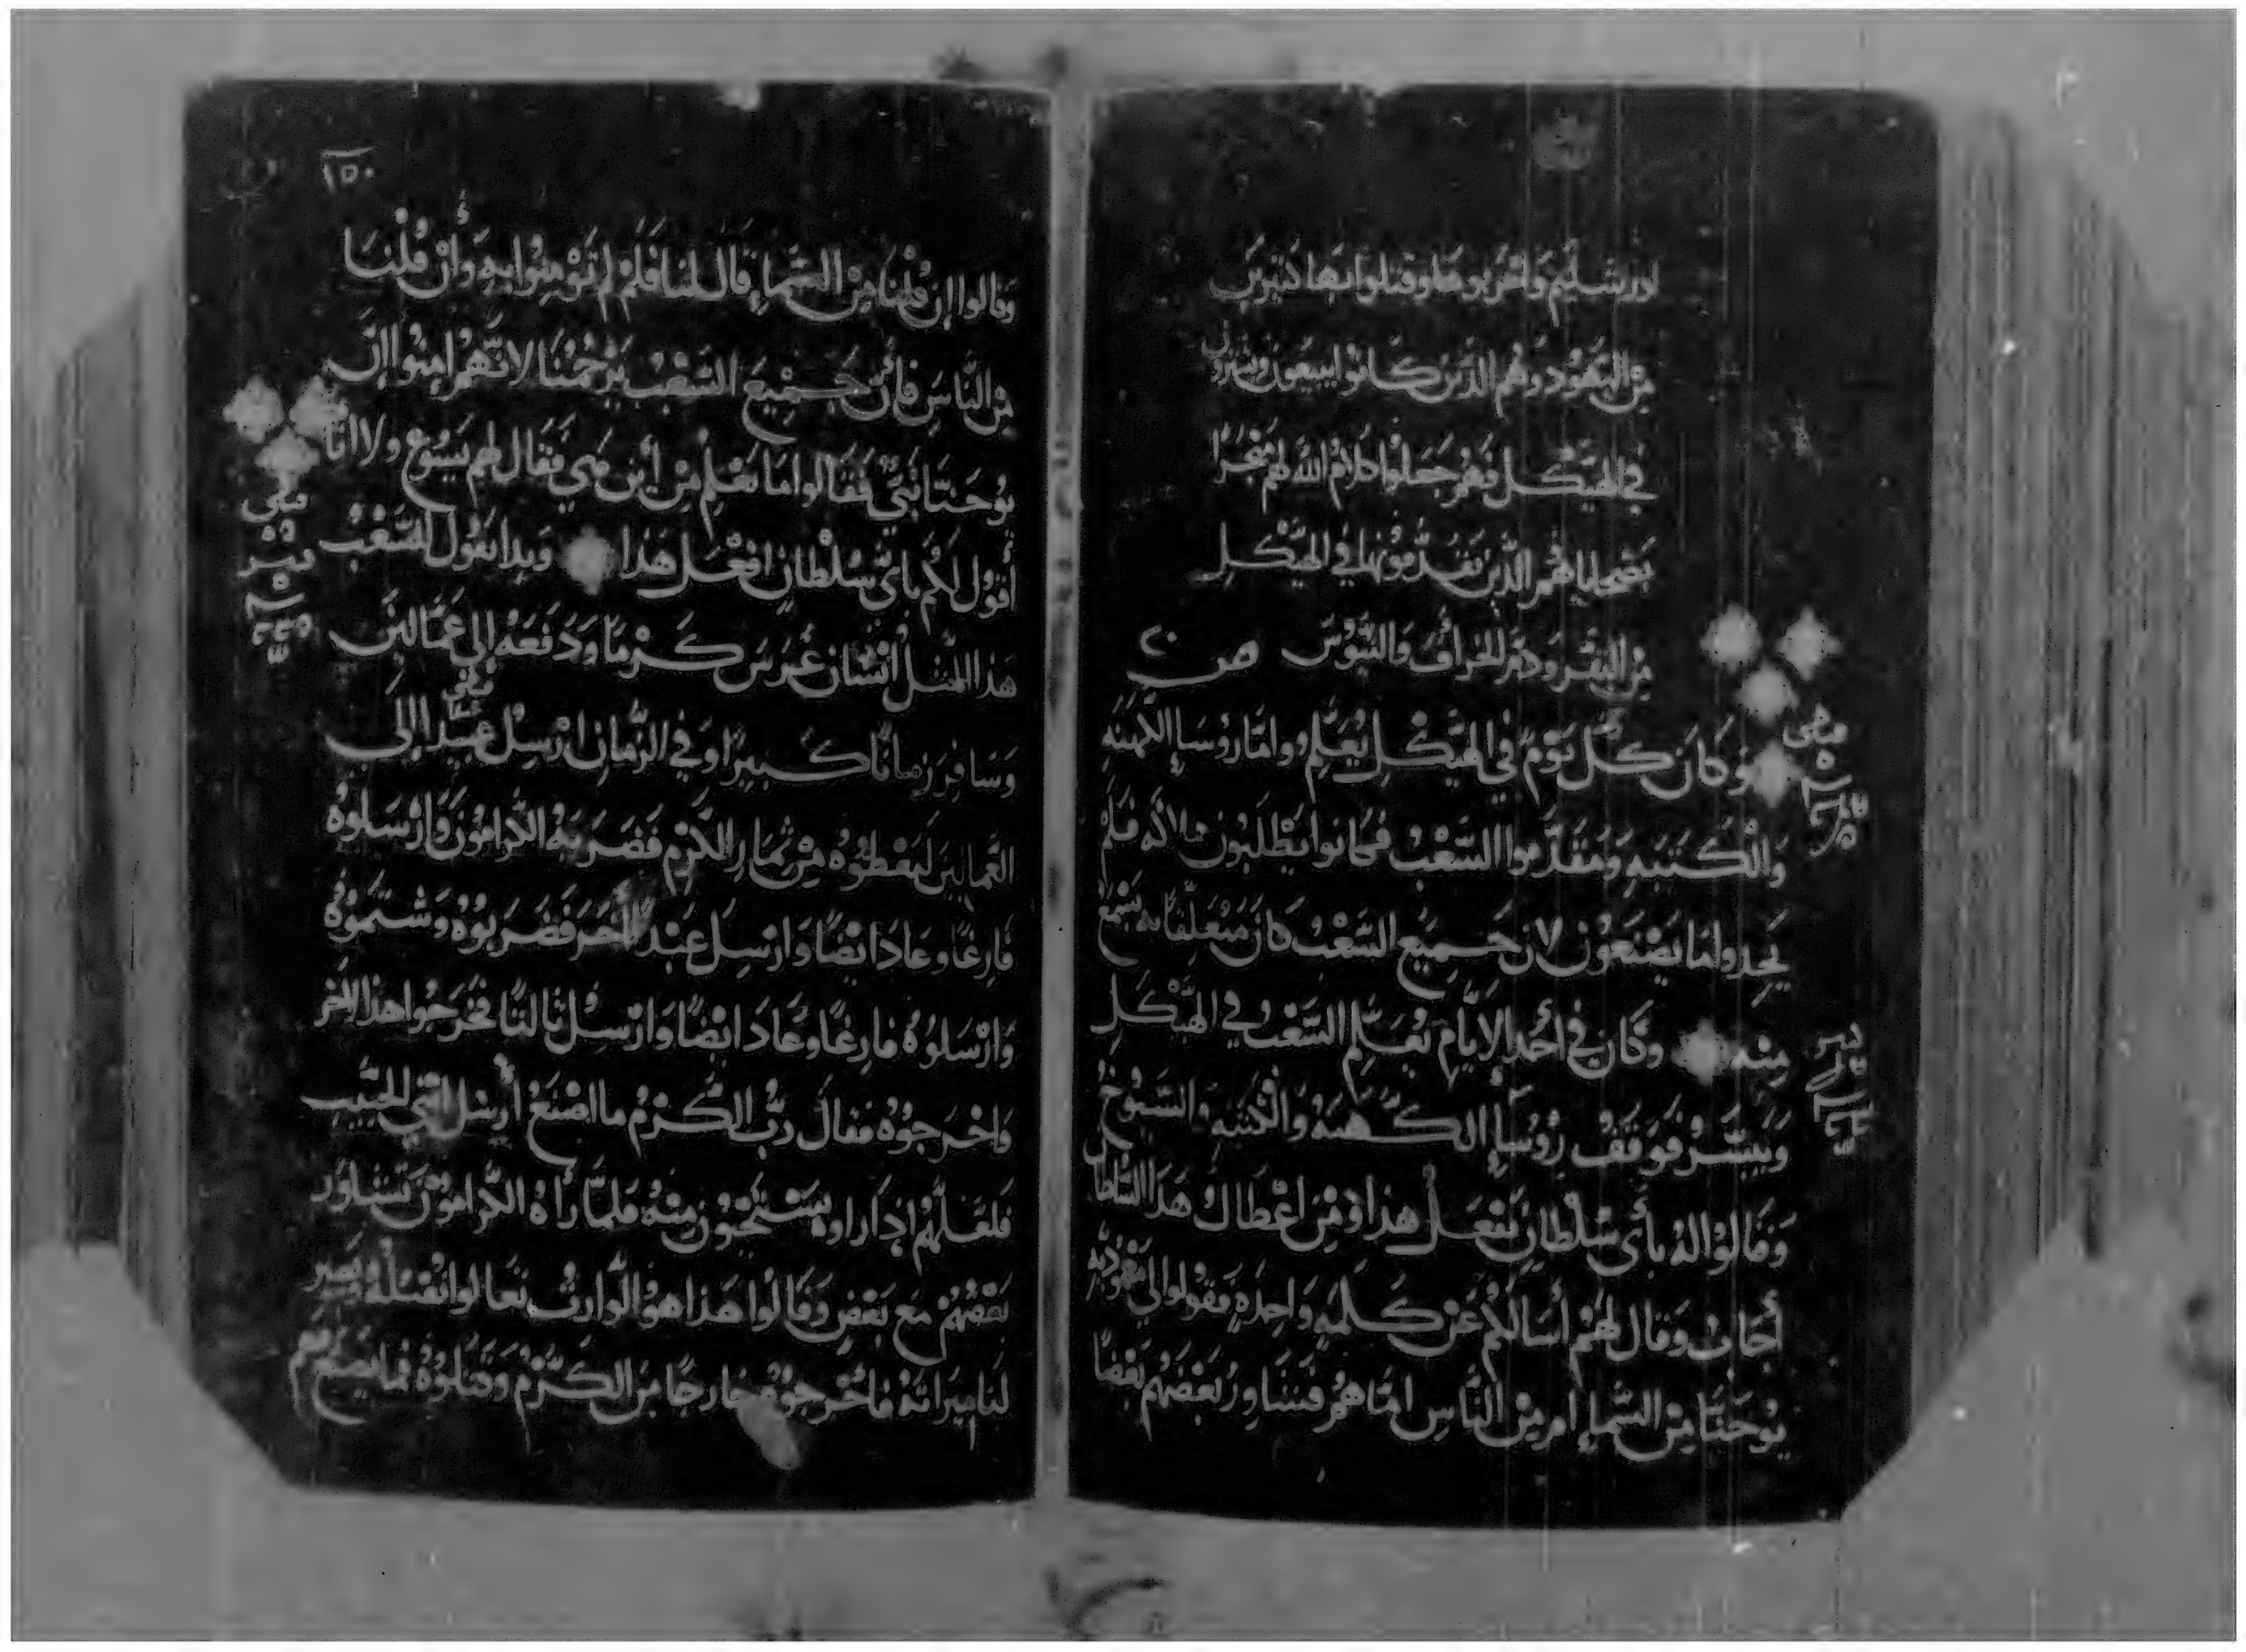 لاورشليم واخربوها وقتلوا بها كثيرين
من اليهود وهم الذين كانوا يبيعون ويشترون
في الهيكل فهم جعلوا كلام الله لهم متجرا
بضحاياهم الذين يقدمونها في الهيكل
من البقر ودم الخراف والتيوس
ص ٢٠
وَكَانَ كُل يَوْم في الهيكل يُعَلِّم واما رؤسا الكهنه
والكتبه ومقدموا الشعب فكانوا يطلبون هلاكه فلم
يجدوا ما يصنعون لان جميع الشعب كان متعلقا به يسمع
منه وكان في أحد الايام يعلم الشعب في الهيكل
ويبشر فوقف رؤسا الكهنه والكتبه والشيوخ
وقالوا له بأي سلطان تفعل هذا ومن اعطاك هذا السلطان
أجاب وقال لهم أسالكم عن كلمه واحده فقولوا لي معموديه
يوحنا من السماء ام من الناس اما هم فتشاور بعضهم بعضا
١٥٠
وقالوا إن قلنا من السماء قال لنا فلم لم تؤمنوا به وأن قلنا
من الناس فان جميع الشعب يرجمنا لانهم امنوا ان
يوحنا نبي فقالوا ما نعلم من أين هي فقال لهم يسوع ولا انا
أقول لكم باي سلطان افعل هذا وبدا يقول للشعب
هذا المثل انسان غرس كرما ودفعه إلى عمالين
وسافر زمانا كبيرا وفي الزمان ارسل عبدا الى
العمالين ليعطوه من ثمار الكرم فضربه الكرامون وارسلوه
فارغا وعاد ايضا وارسل عبدا اخر فضربوه وشتموه
وارسلوه فارغا وعاد ايضا وارسل ثالثا فجرحوا هذا الاخر
واخرجوه فقال رب الكرم ما اصنع أرسل ابني الحبيب
فلعلهم اذا راوه يستحيون منه فلما رأه الكرامون تشاور
بعضهم مع بعض وقالوا هذا هو الوارث تعالوا نقتله ويصير
لنا ميراثه فاخرجوه خارجا من الكرم وقتلوه فما يصنع بهم